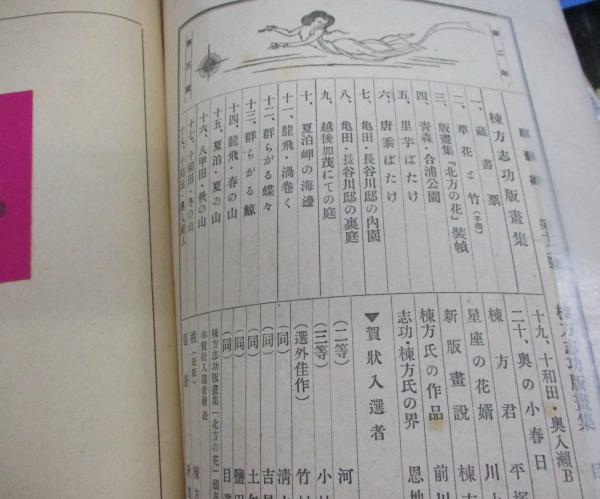 第二年
第三號
版藝術
第十二號
棟方志功版畫集
一、藏書票
二、草花と竹(手摺)
三、版畫集『北方の花』裝幀
四、青森・合浦公園
五、里芋ばたけ
六、唐黍ばたけ
七、亀田・長谷川邸の內園
八、亀田・長谷川邸の裏庭
九、越後加茂にての庭
十、夏泊岬の海邊
十一、龍飛・渦卷く
十二、群らがる蝶々
十三、群らがる鯨
十四、龍飛・春の山
十五、夏泊・夏の山
十六、八甲田・秋の山
十七、十和田・冬の山
十八、十和田・奥入瀨A
棟方志功版畫集 目
十九、十和田・奥入瀨B
二十、奥の小春日
棟方君 平塚
星座の花婿 川上
新版畫說 棟方
棟方氏の作品 前川
志功・棟方氏の界 恩地
▼賀狀入選者
(二等) 河
(三等) 小林
(選外佳作) 竹村
(同) 清水
(同) 吉
(同) 土
(同) 鹽田
(同) 目
棟方志功版畫集『北方の花』頒布
年賀狀入選者發表